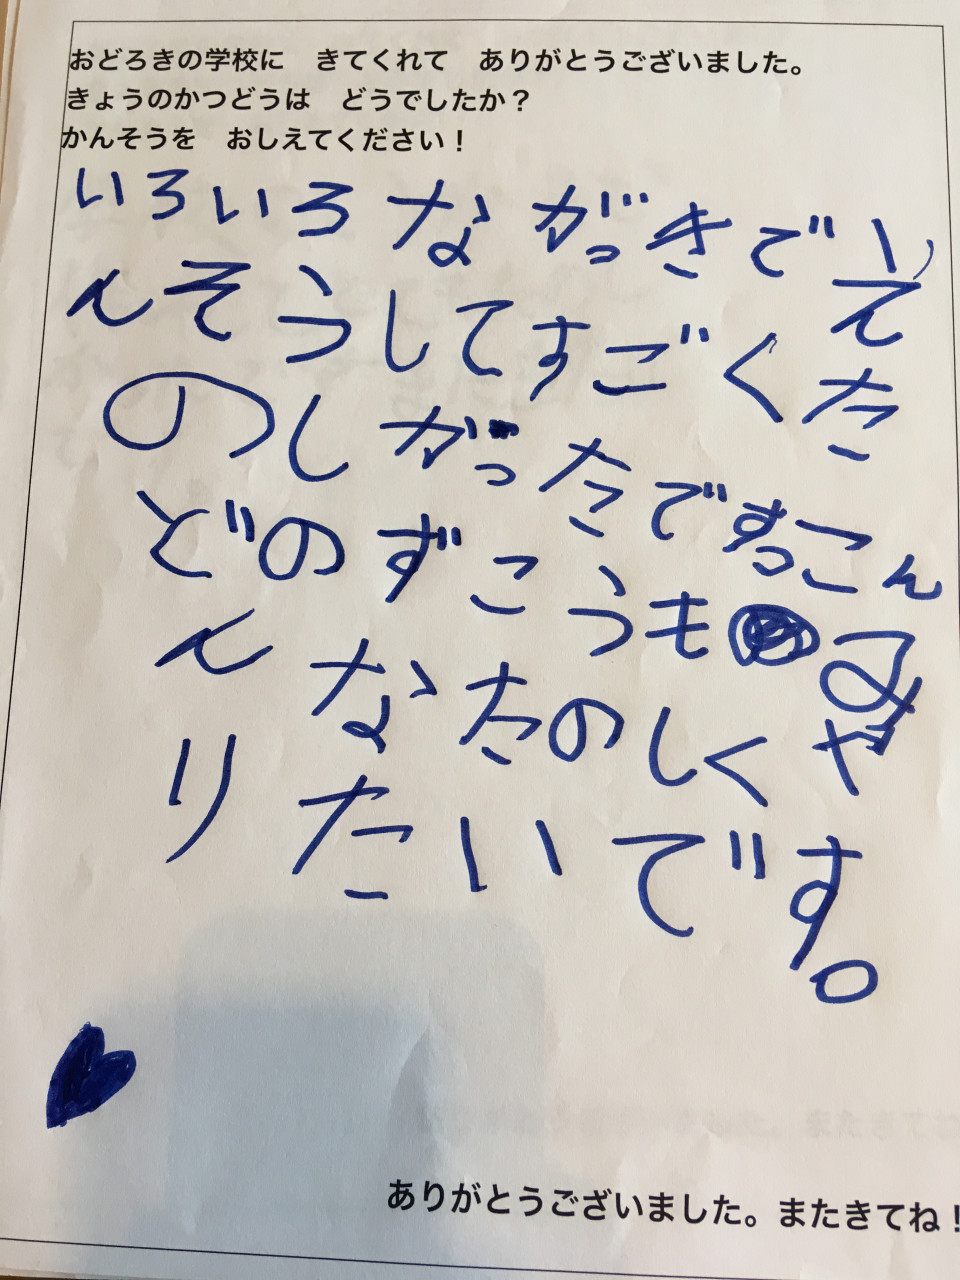 おどろきの学校に　きてくれて　ありがとうございました。
きょうのかつどうは　どうでしたか？
かんそうを　おしえてください！
いろいろながっきでえ
んそうしてすごくた
のしかったです。こん
どのずこうもみ
んなたのしくや
りたいです。
ありがとうございました。またきてね！